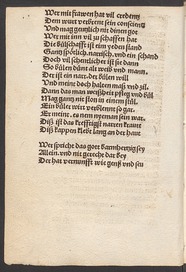 Wer mit frawen hat vil credentz
Dem würt verbrent sein conscientz
Und mag gentzlich nit dienen got
Wer mit inn vil zu schaffen hat
Die bůlschafft ist ein yeden stand
Gantz spötlich, narrisch, und ein schand
Doch vil schentlicher ist sie dann
So bůlen důnt alt weib und mann.
Der ist ein narr, der bůlen will
Und meint doch halten maß und zil
Dann das man weißheit pfleg und bůl
Mag gantz nit ston in einem stůl
Ein bůler wirt verblendt so gar
Er meint, es nem nyeman sein war
Diß ist das krefftigst narren krut
Diß kappen klebt lang an der hut
Wer spricht das gott barmhertzig sey
Allein, und nit gerecht dar bey
Der hat vernunfft wie genß und seu